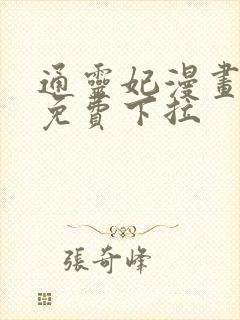 通靈妃漫畫
免費下拉
張奇峰